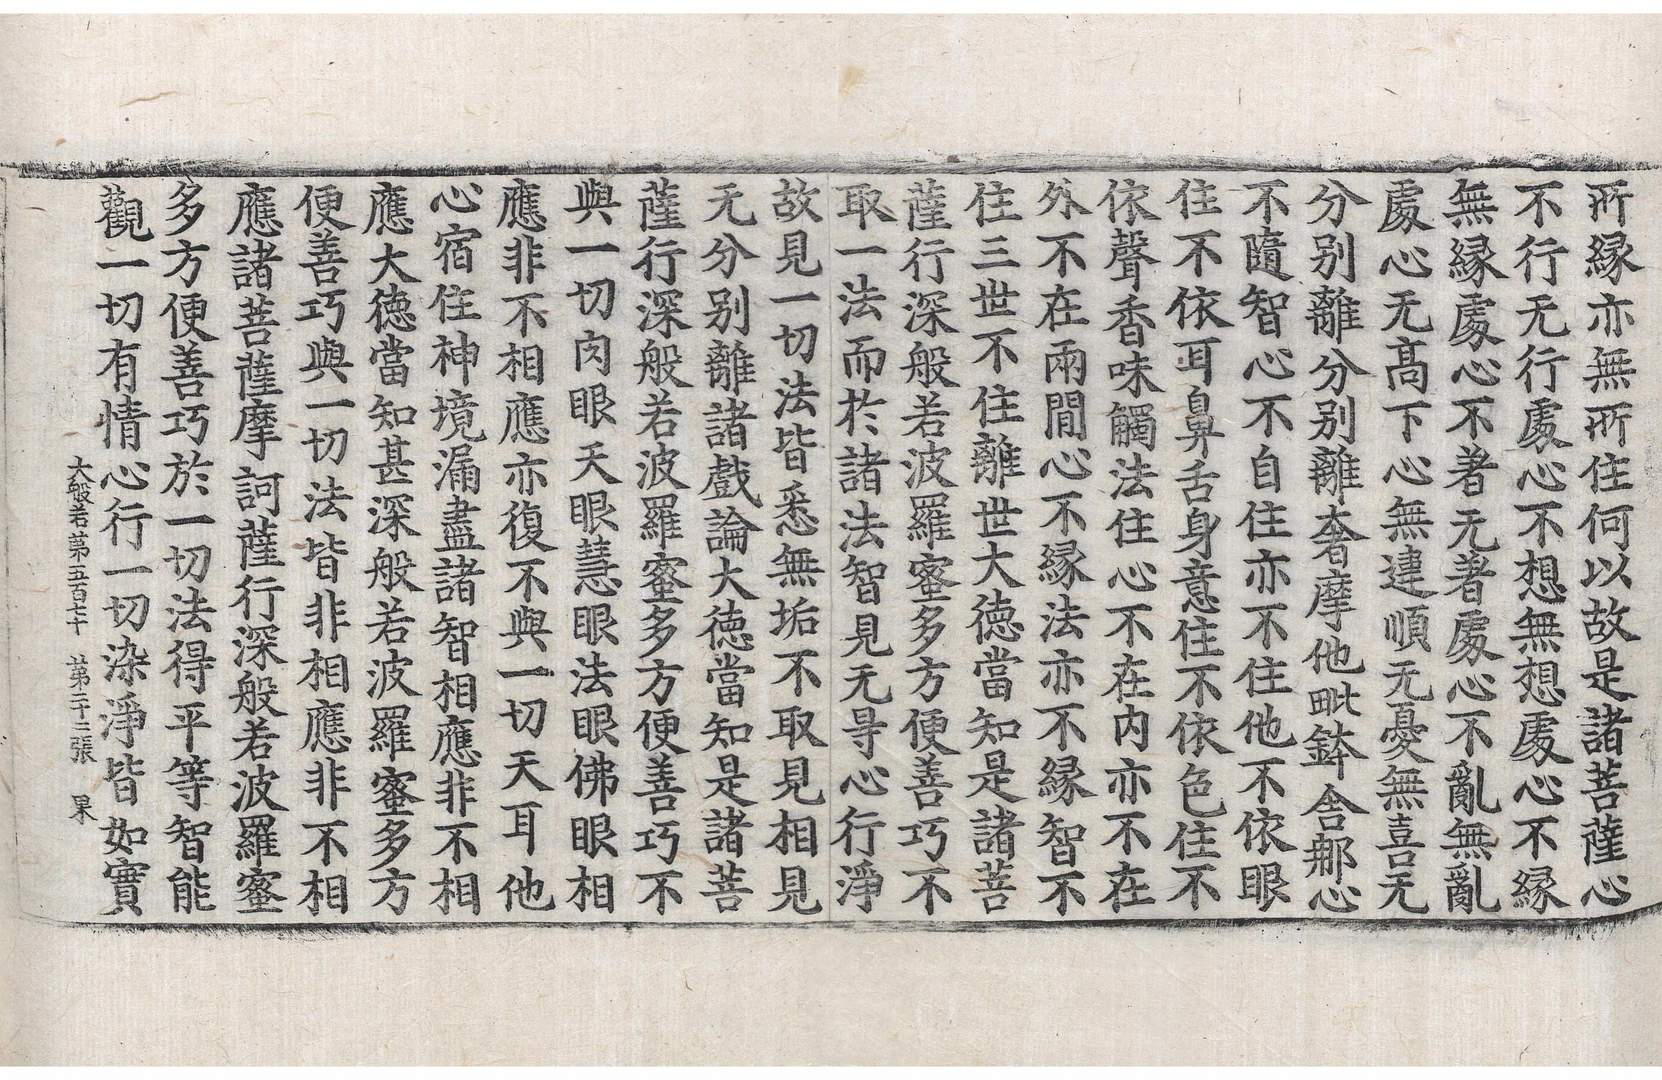 所緣亦無所住何以故是諸菩薩心
不行无行處心不想無想處心不緣
無緣處心不著无著處心不亂無亂
處心无高下心無違順无憂無喜无
分別離分別離奢摩他毗鉢舍那心
不隨智心不自住亦不住他不依眼
住不依耳鼻舌身意住不依色住不
依聲香味觸法住心不在內亦不在
外不在兩間心不緣法亦不緣智不
住三世不住離世大德當知是諸菩
薩行深般若波羅蜜多方便善巧不
取一法而於諸法智見无㝵心行淨
故見一切法皆悉無垢不取見相見
无分別離諸戲論大德當知是諸菩
薩行深般若波羅蜜多方便善巧不
與一切肉眼天眼慧眼法眼佛眼相
應非不相應亦復不與一切天耳他
心宿住神境漏盡諸智相應非不相
應大德當知甚深般若波羅蜜多方
便善巧與一切法皆非相應非不相
應諸菩薩摩訶薩行深般若波羅蜜
多方便善巧於一切法得平等智能
觀一切有情心行一切染淨皆如實
大般若第五百七十　第二十三張　果